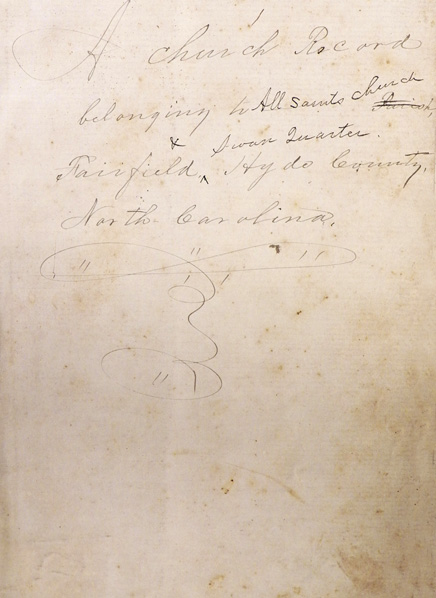 A Church Record
belonging to All Saints Church Parish,
& Swan Quarter.
Fairfield, Hyde County,
North Carolina.